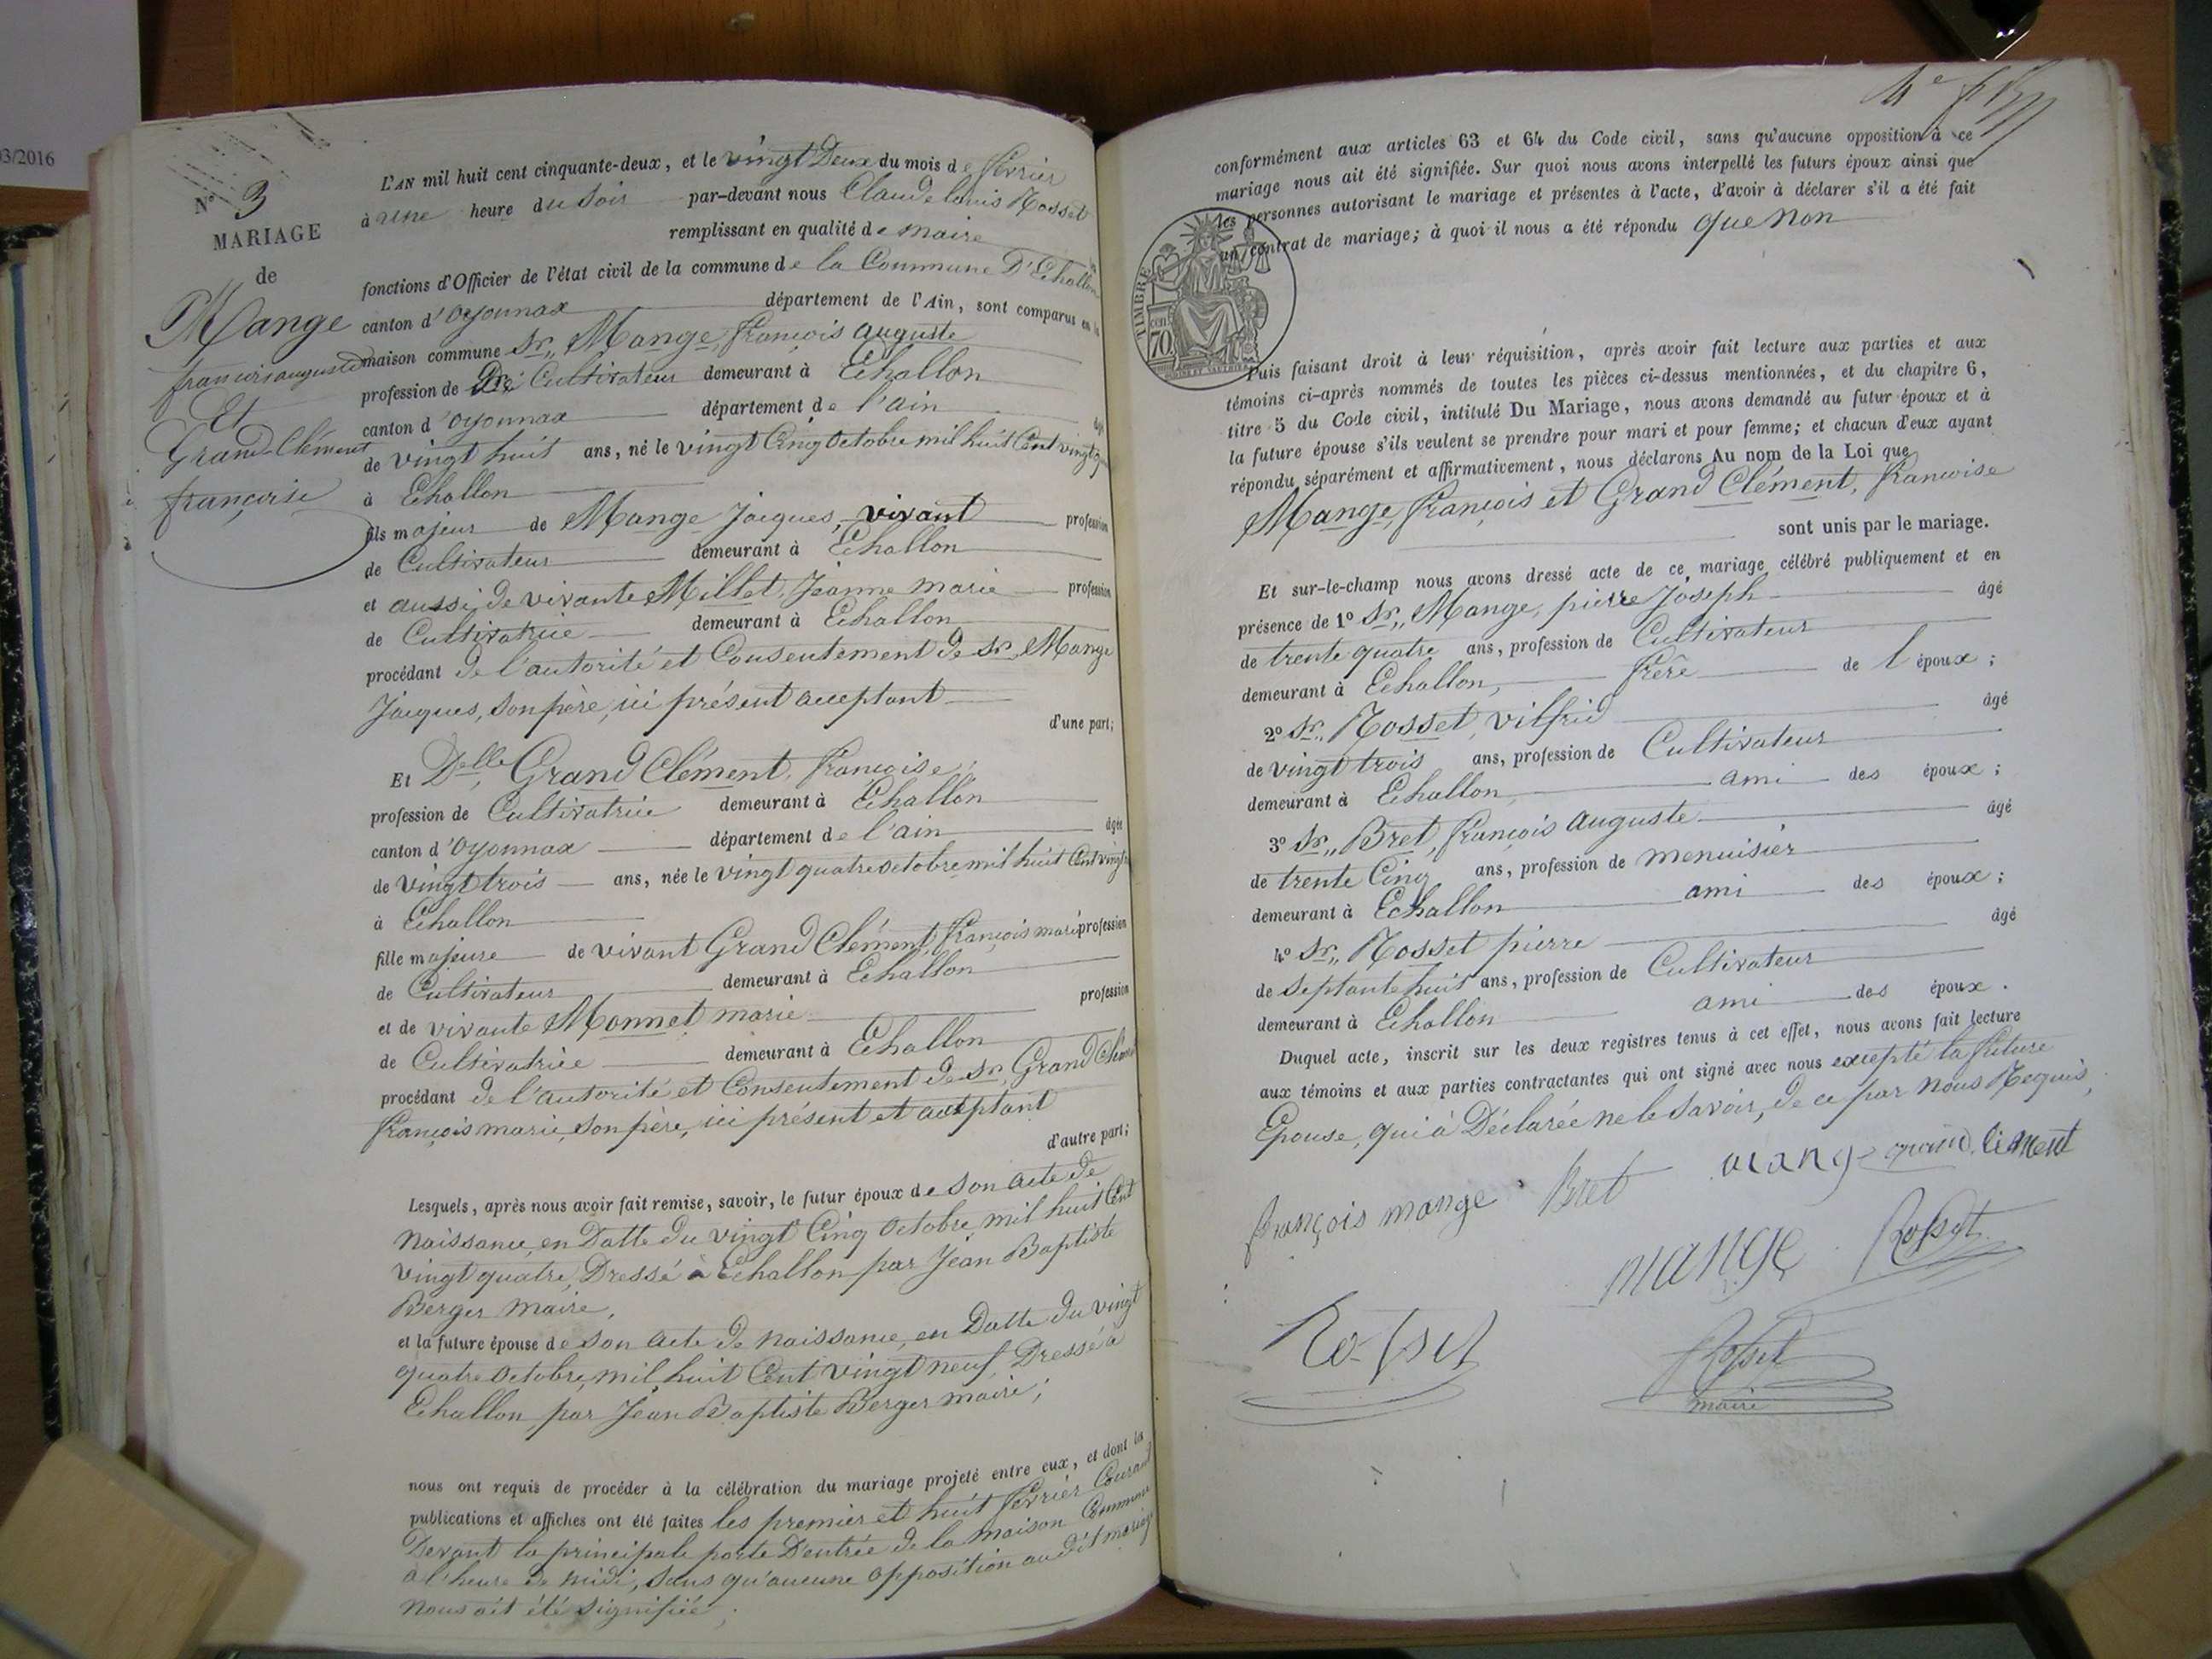 03/2016
L'AN mil huit cent cinquante-deux, et le vingt Deux du mois de février
à une heure du Soir par-devant nous Claude louis Rosset
remplissant en qualité de maire
fonctions d'Officier de l'état civil de la commune de la Commune D'Echallon
canton d'Oyonnax département de l'Ain, sont comparus en la
maison commune Sr,, Mange françois auguste
profession de Cultivateur demeurant à Echallon
canton d'Oyonnax département de l'ain âgé
de vingt huit ans, né le vingt Cinq octobre mil huit Cent vingt
à Echallon
fils majeur de Mange Jacques, vivant profession
de Cultivateur demeurant à Echallon
et aussi, de vivante Millet, Jeanne marie profession
de Cultivatrice demeurant à Echallon
procédant de l'autorité et Consentement de Sr Mange
Jacques, son père, ici présent acceptant
d'une part;
N° 3
MARIAGE
de
Mange
françois auguste
Et
Grand-Clément
françoise
Et Delle, Grand Clément, françoise,
profession de Cultivatrice demeurant à Echallon
canton d'Oyonnax département de l'ain âgée
de vingt trois ans, née le vingt quatre octobre mil huit Cent vingt
à Echallon
fille majeure de vivant Grand Clément, françois marie profession
de Cultivateur demeurant à Echallon
et de vivante Monnet marie profession
de Cultivatrice demeurant à Echallon
procédant de l'autorité et Consentement de Sr, Grand Clément
françois marie, son père, ici présent et acceptant
d'autre part;
Lesquels, après nous avoir fait remise, savoir, le futur époux de son acte de
Naissance, en Datte du vingt Cinq octobre, mil huit Cent
vingt quatre, Dressé à Echallon par Jean Baptiste
Berger maire,
et la future épouse de son acte de naissance, en Datte du vingt
quatre octobre, mil huit Cent vingt neuf, Dressé à
Echallon par Jean Baptiste Berger maire;
nous ont requis de procéder à la célébration du mariage projeté entre eux, et dont les
publications et affiches ont été faites les premier et huit février Courant
Devant la principale porte D'entrée de la maison Commune
à l'heure de midi, Sans qu'aucune opposition au dit mariage
nous ait été signifiée;
conformément aux articles 63 et 64 du Code civil, sans qu'aucune opposition à ce
mariage nous ait été signifiée. Sur quoi nous avons interpellé les futurs époux ainsi que
les personnes autorisant le mariage et présentes à l'acte, d'avoir à déclarer s'il a été fait
un contrat de mariage; à quoi il nous a été répondu que non
TIMBRE
70.
Puis faisant droit à leur réquisition, après avoir fait lecture aux parties et aux
témoins ci-après nommés de toutes les pièces ci-dessus mentionnées, et du chapitre 6,
titre 5 du Code civil, intitulé Du Mariage, nous avons demandé au futur époux et à
la future épouse s'ils veulent se prendre pour mari et pour femme; et chacun d'eux ayant
répondu séparément et affirmativement, nous déclarons Au nom de la Loi que
Mange, françois et Grand Clément, françoise
sont unis par le mariage.
Et sur-le-champ nous avons dressé acte de ce mariage célébré publiquement et en
présence de 1° Sr,, Mange, pierre Joseph âgé
de trente quatre ans, profession de Cultivateur
demeurant à Echallon, frère de l'époux;
2° Sr,, Rosset, vilfrid âgé
de vingt trois ans, profession de Cultivateur
demeurant à Echallon, ami des époux;
3° Sr,, Bret, françois auguste âgé
de trente Cinq ans, profession de menuisier
demeurant à Echallon ami des époux;
4° Sr,, Rosset pierre âgé
de Septante huit ans, profession de Cultivateur
demeurant à Echallon ami des époux.
Duquel acte, inscrit sur les deux registres tenus à cet effet, nous avons fait lecture
aux témoins et aux parties contractantes qui ont signé avec nous excepté la future
Epouse, qui à Déclarée ne le Savoir, de ce par nous Requis,
françois mange Bret mange grand clément
mange Rosset
Rosset
Rosset
maire